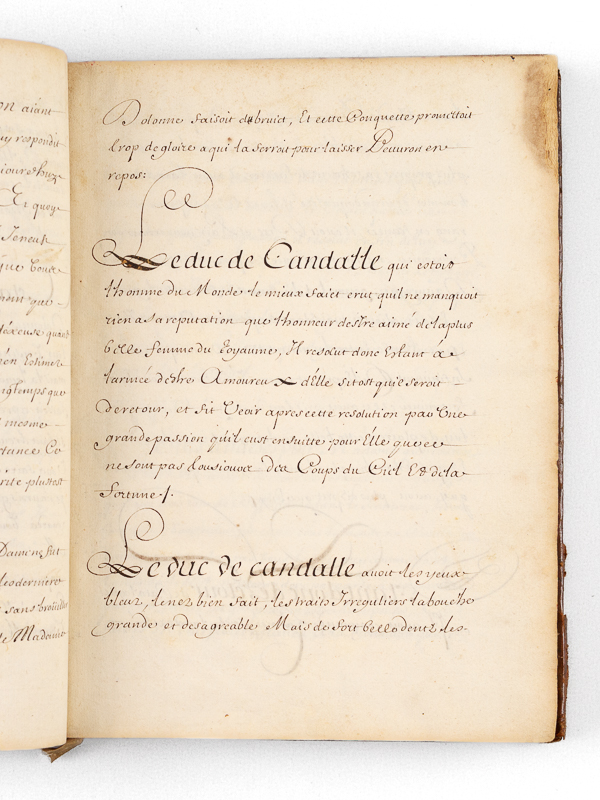 on aiant
uy respondit
Et quoy
que
hom que
quand
mesme
tance Ce
rite plustost
Dame fut
les derniere
te Madame
Dolonne faisoit du bruict, Et cette Conqueste promettoit
trop de gloire a qui la feroit pour laisser Beuuron en
repos:
Le duc de Candalle qui estoit
l'homme du Monde le mieux faict crut qu'il ne manquoit
rien a sa reputation que l'honneur destre aimé de la plus
belle femme du Royaume, Il resolut donc Estant á
l'armée destre Amoureux d'Elle sitost qu'il seroit
de retour, et fit Veoir apres cette resolution par Une
grande passion qu'il eust en suitte pour Elle que ce
ne sont pas tousiours des Coups du Ciel Et de la
fortune /.
Le duc de candalle auoit les yeux
bleuz, le nez bien fait, les traits Irreguliers la bouche
grande et desagreable Mais de fort belle dentz les